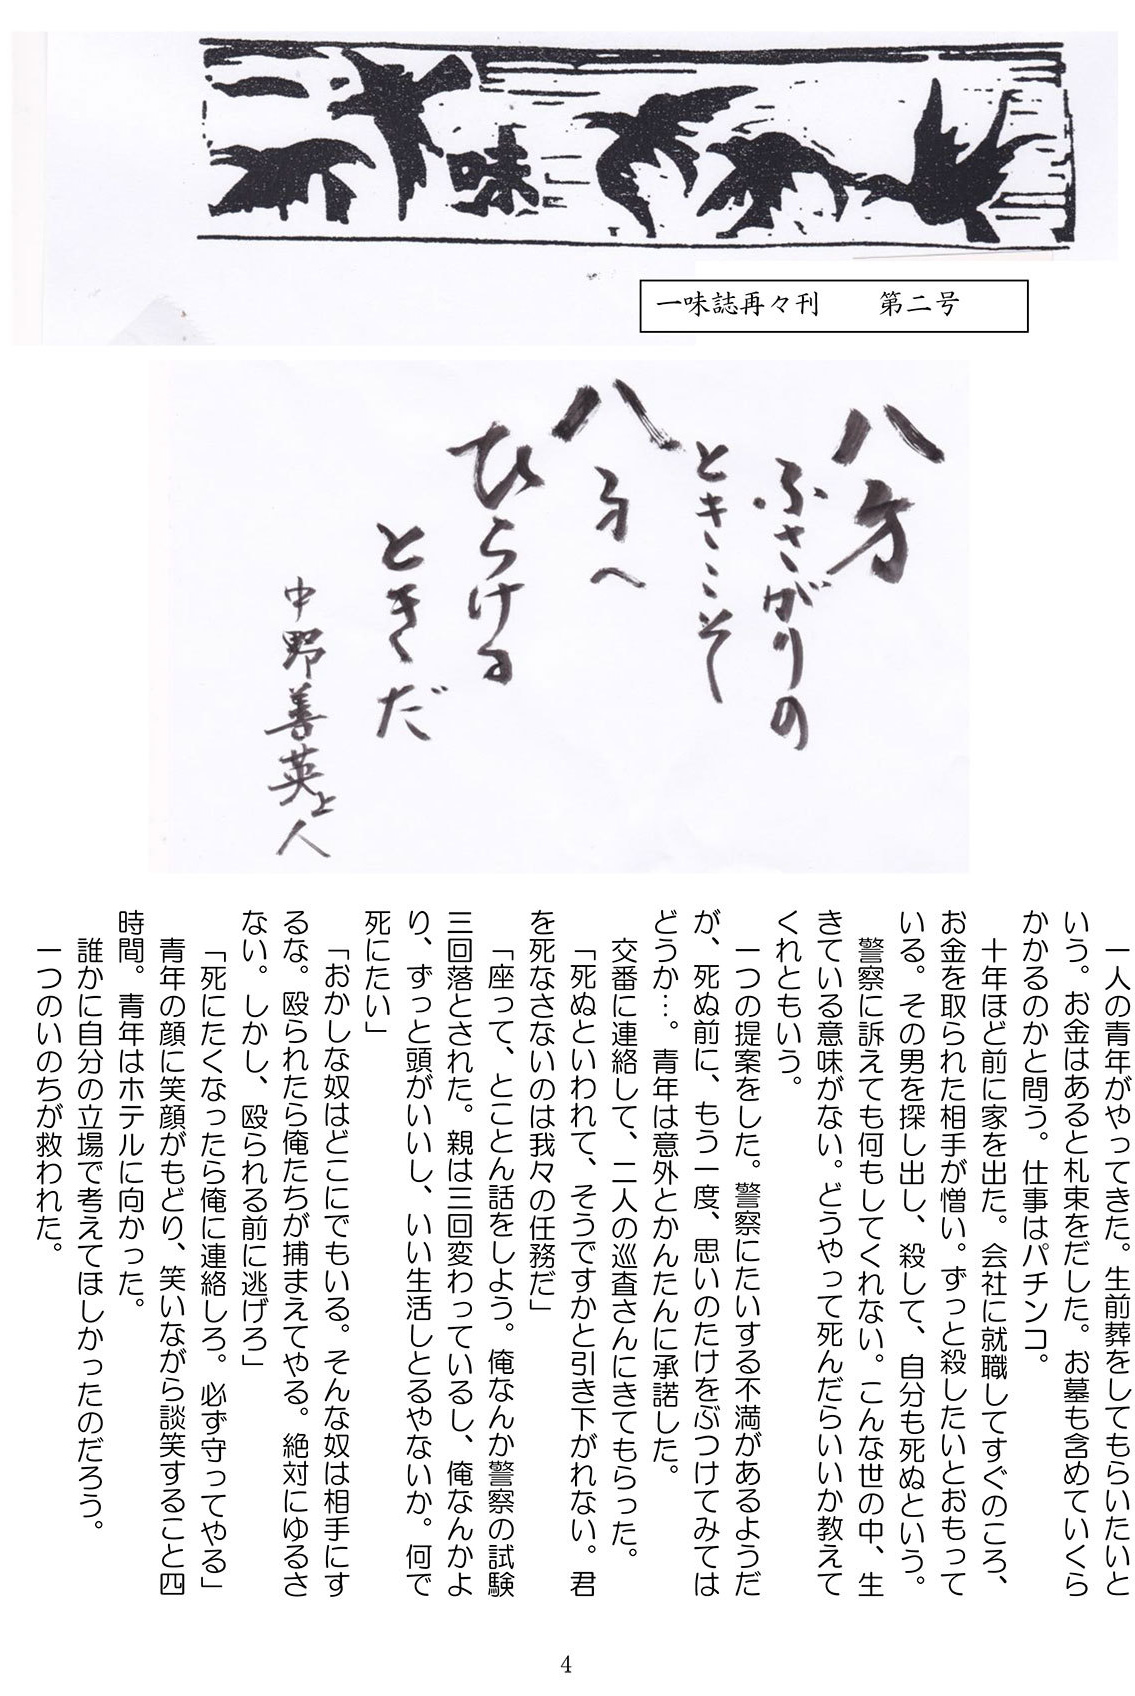 一味
一味誌再々刊　　第二号
八方
ふさがりの
ときこそ
八方へ
ひらける
ときだ
中野善英上人
一人の青年がやってきた。生前葬をしてもらいたいと
いう。お金はあると札束をだした。お墓も含めていくら
かかるのかと問う。仕事はパチンコ。
十年ほど前に家を出た。会社に就職してすぐのころ、
お金を取られた相手が憎い。ずっと殺したいとおもって
いる。その男を探し出し、殺して、自分も死ぬという。
警察に訴えても何もしてくれない。こんな世の中、生
きている意味がない。どうやって死んだらいいか教えて
くれともいう。
一つの提案をした。警察にたいする不満があるようだ
が、死ぬ前に、もう一度、思いのたけをぶつけてみては
どうか…。青年は意外とかんたんに承諾した。
交番に連絡して、二人の巡査さんにきてもらった。
「死ぬといわれて、そうですかと引き下がれない。君
を死なさないのは我々の任務だ」
「座って、とことん話をしよう。俺なんか警察の試験
三回落とされた。親は三回変わっているし、俺なんかよ
り、ずっと頭がいいし、いい生活しとるやないか。何で
死にたい」
「おかしな奴はどこにでもいる。そんな奴は相手にす
るな。殴られたら俺たちが捕まえてやる。絶対にゆるさ
ない。しかし、殴られる前に逃げろ」
「死にたくなったら俺に連絡しろ。必ず守ってやる」
青年の顔に笑顔がもどり、笑いながら談笑すること四
時間。青年はホテルに向かった。
誰かに自分の立場で考えてほしかったのだろう。
一つのいのちが救われた。
4